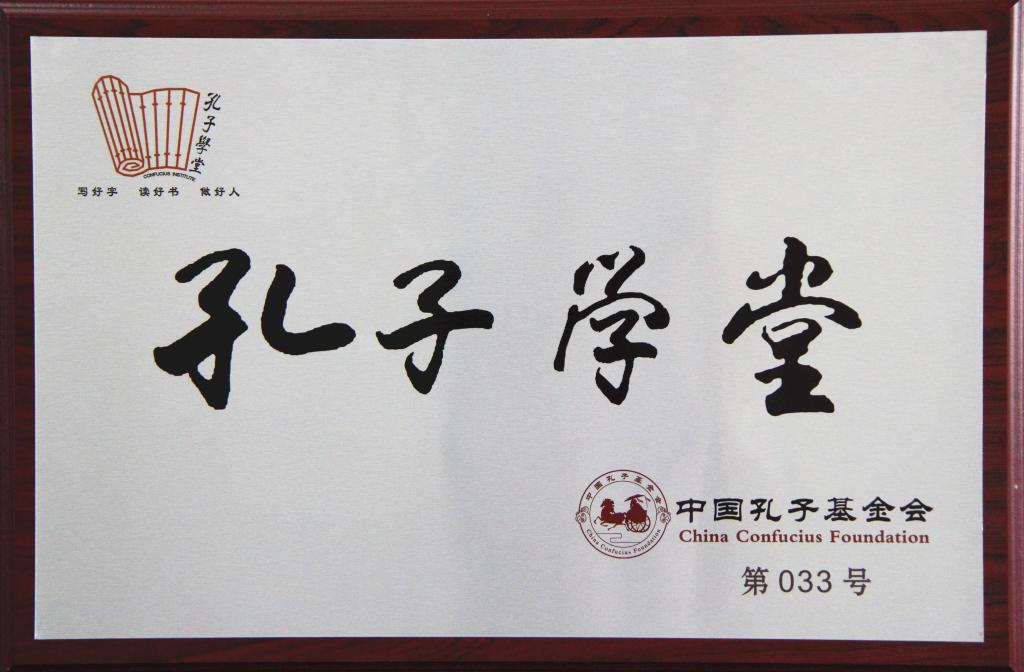 孔子學堂
CONFUCIUS INSTITUTE
写好字 读好书 做好人
孔子学堂
中国孔子基金会
China Confucius Foundation
中国孔子基金会
China Confucius Foundation
第 033 号